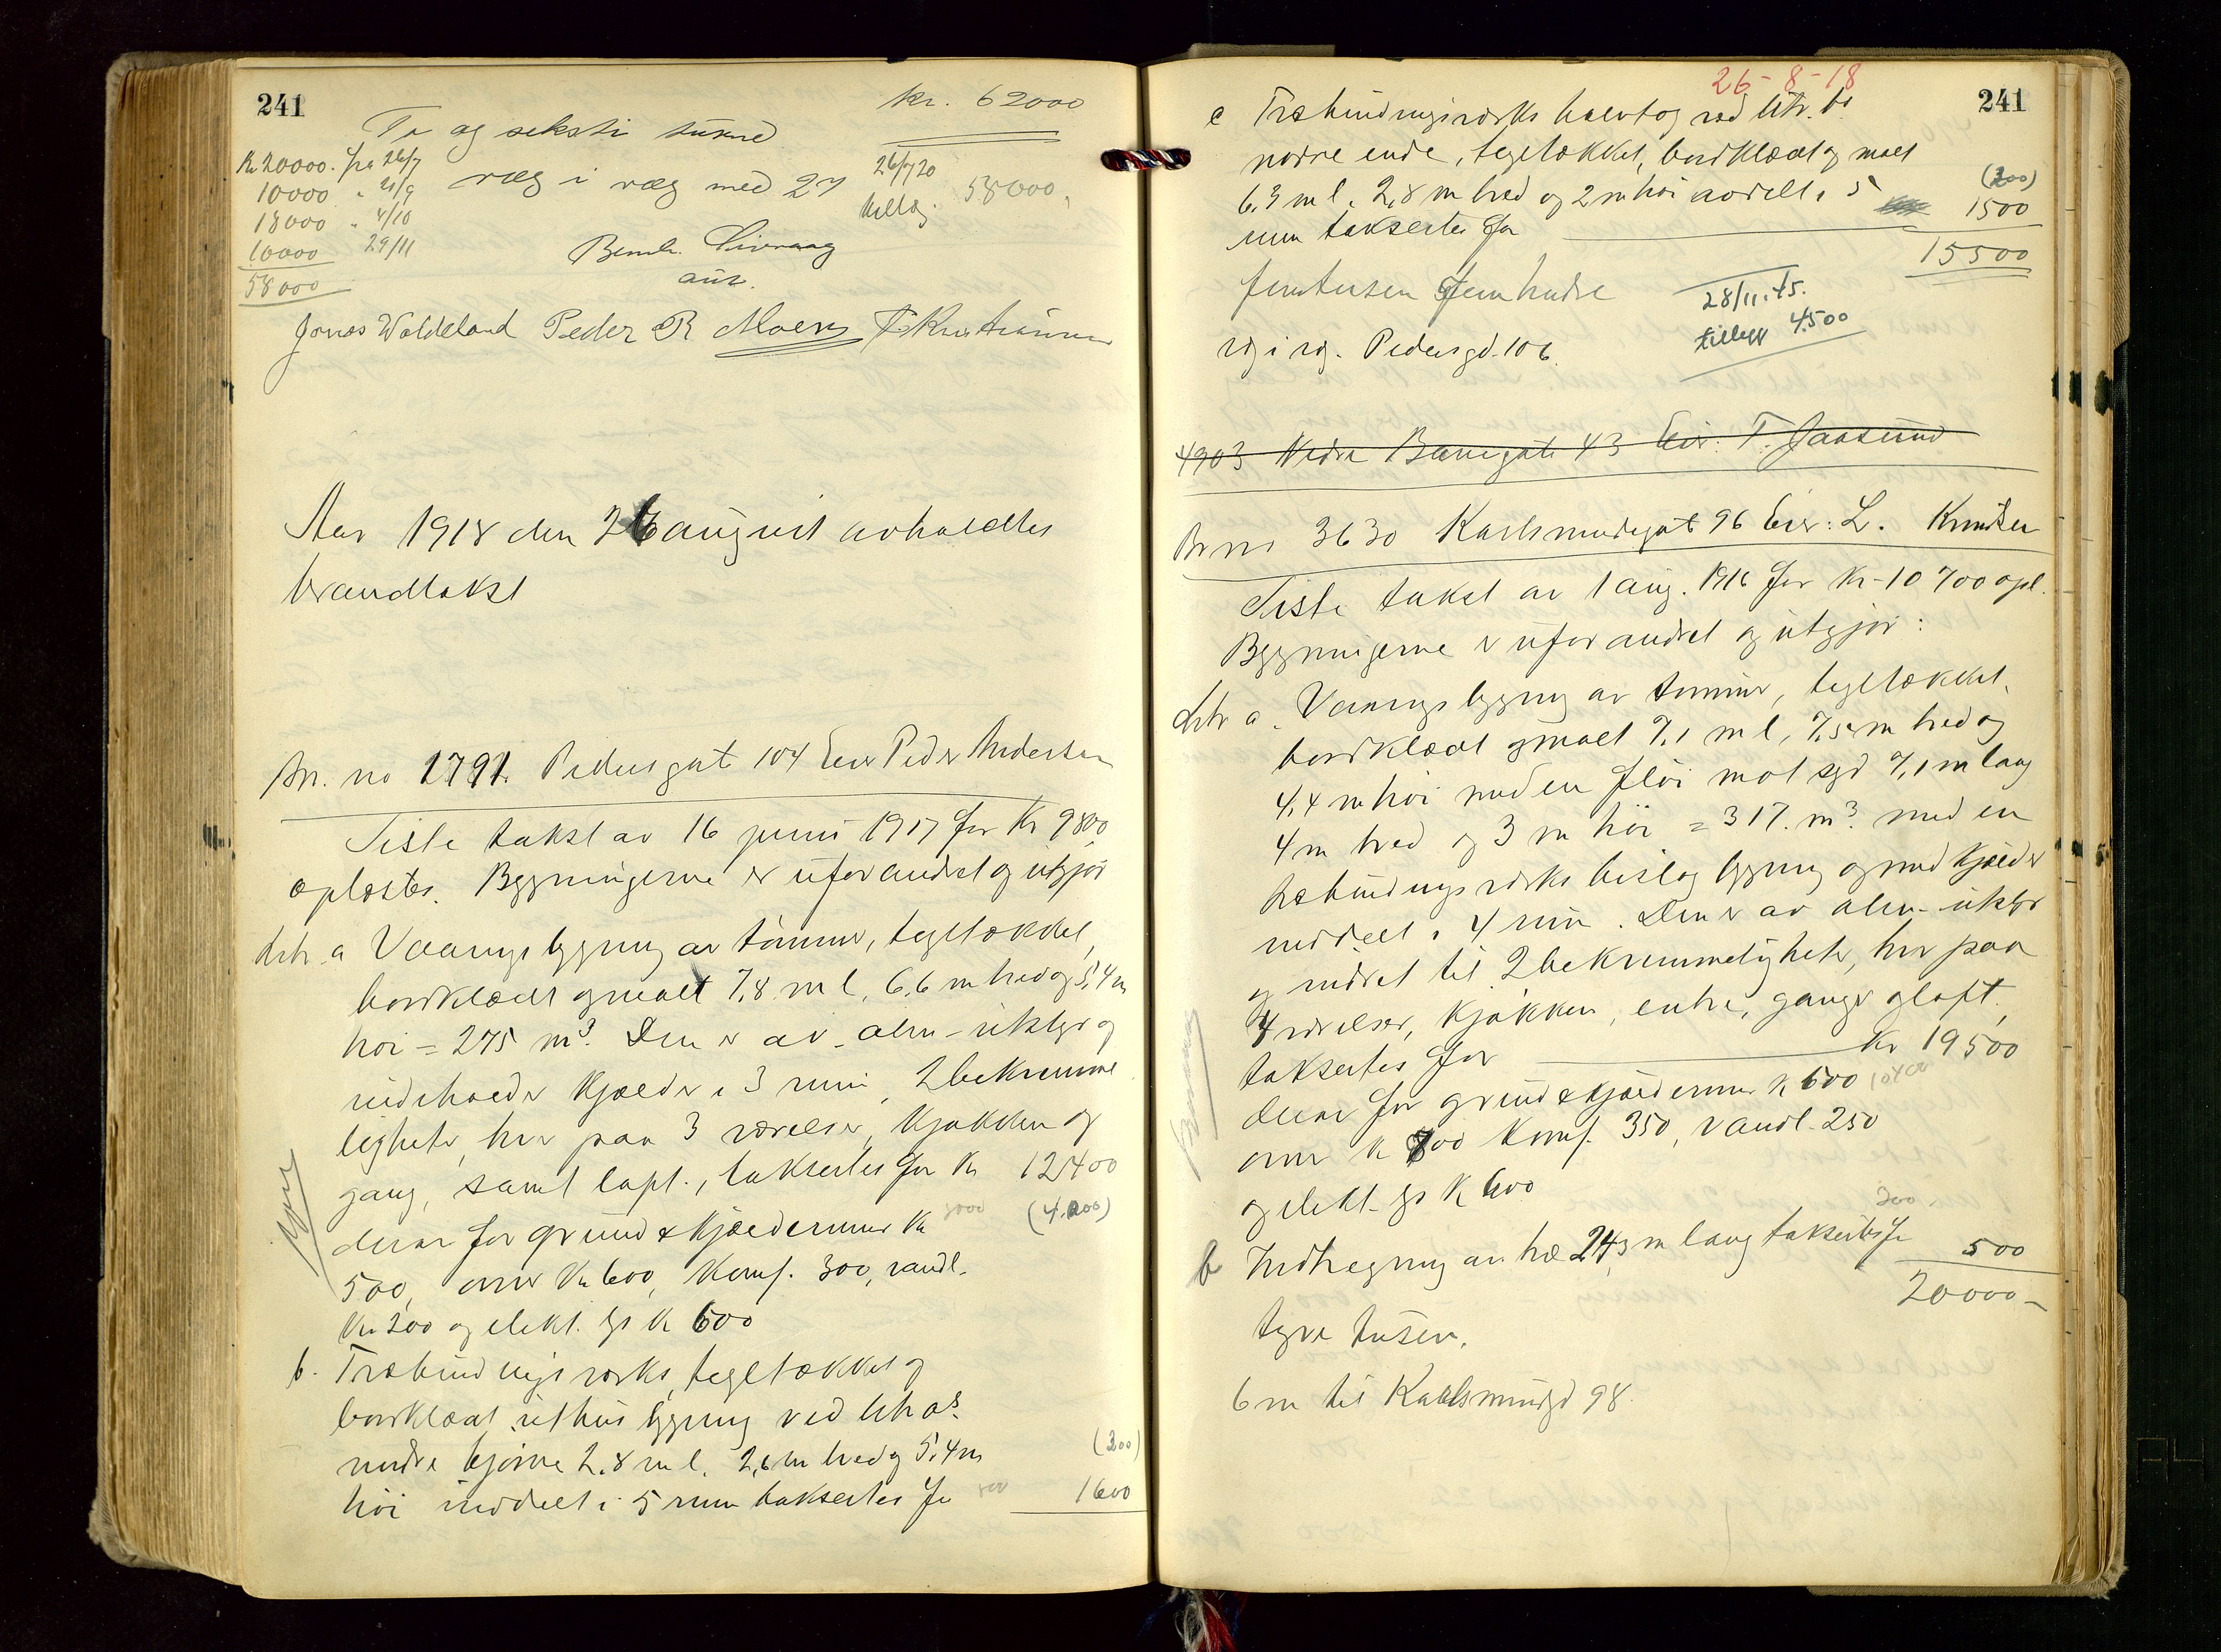 241
kr. 62000
To og seksti tusind
Kr 20000. fra 26/7
10000 " 21/9
18000 " 4/10
10000 29/11
58000
væg i væg med 27
26/7 20
tillæg. 58000,
Bernh.
aür.
Jonas Waldeland Peder R Moen F Kristiansen
Aar 1918 den 26 august avholdtes
brandtakst
Br. no 1791. Pedersgat 104 Eier Peder Andersen
Siste takst av 16 juni 1917 for Kr 9800
oplæstes. Bygningerne er uforandret og utgjør
Litr. a Vaaningsbygning av tømmer, tegltækket,
bordklædt og malt 7,8 m l, 6,6 m bred og 5,4 m
høi = 275 m³. Den er av alm. utstyr og
indeholder kjælder i 3 rum, 2 bekvemme
ligheter, hver paa 3 værelser, kjøkken og
gang, samt loft., taksertes for Kr 12400
derav for grund & kjældermur Kr (4.000)
500, ovner Kr 600, Komf. 300, vandl.
Kr 200 og elekt. lys Kr 600
b. Træbindingsverks, tegltækket og
bordklædt uthusbygning ved litr a's
nordre hjørne 2,8 m l. 2,6 m bred og 5,4 m (300)
høi inddelt i 5 rum taksertes for 1600
26-8-18
241
c Træbindingsverks halvtag ved litr. b's
nordre ende, tegltækket, bordklædt og malt
6,3 m l. 2,8 m bred og 2 m høi avdelt i 5 (300)
rum taksertes for 1500
15500
28/11.45.
tillegg 4500
vg i vg. Pedersgd. 106.
4903 Nedre Banegate 43 Eier: T. Jaasund
Br no 3630 Karlsmindegat 96 Eier: L. Knudsen
Siste takst av 1 aug. 1916 for Kr 10700 opl.
Bygningerne er uforandret og utgjør:
Litr a. Vaaningsbygning av tømmer, tegltækket,
bordklædt og malt 7,1 m l, 7,5 m bred og
4,4 m høi med en fløi mot syd 7,1 m lang
4 m bred og 3 m høi = 317. m³. med en
træbindingsverks bislagbygning og med kjælder
inddelt i 4 rum. Den er av alm. utstyr
og indret til 2 bekvemmeligheter, hver paa
4 værelser, kjøkken, entre, gange og loft,
taksertes for Kr 19500
derav for grund & kjældermur Kr 600
ovner Kr 700 Komf. 350, vandl. 250
og elekt. lys Kr 600
300
b Indhegning av træ 24,3 m lang taksertes for 500
20000-
tyve tusen.
6 m til Karlsmindgd 98.